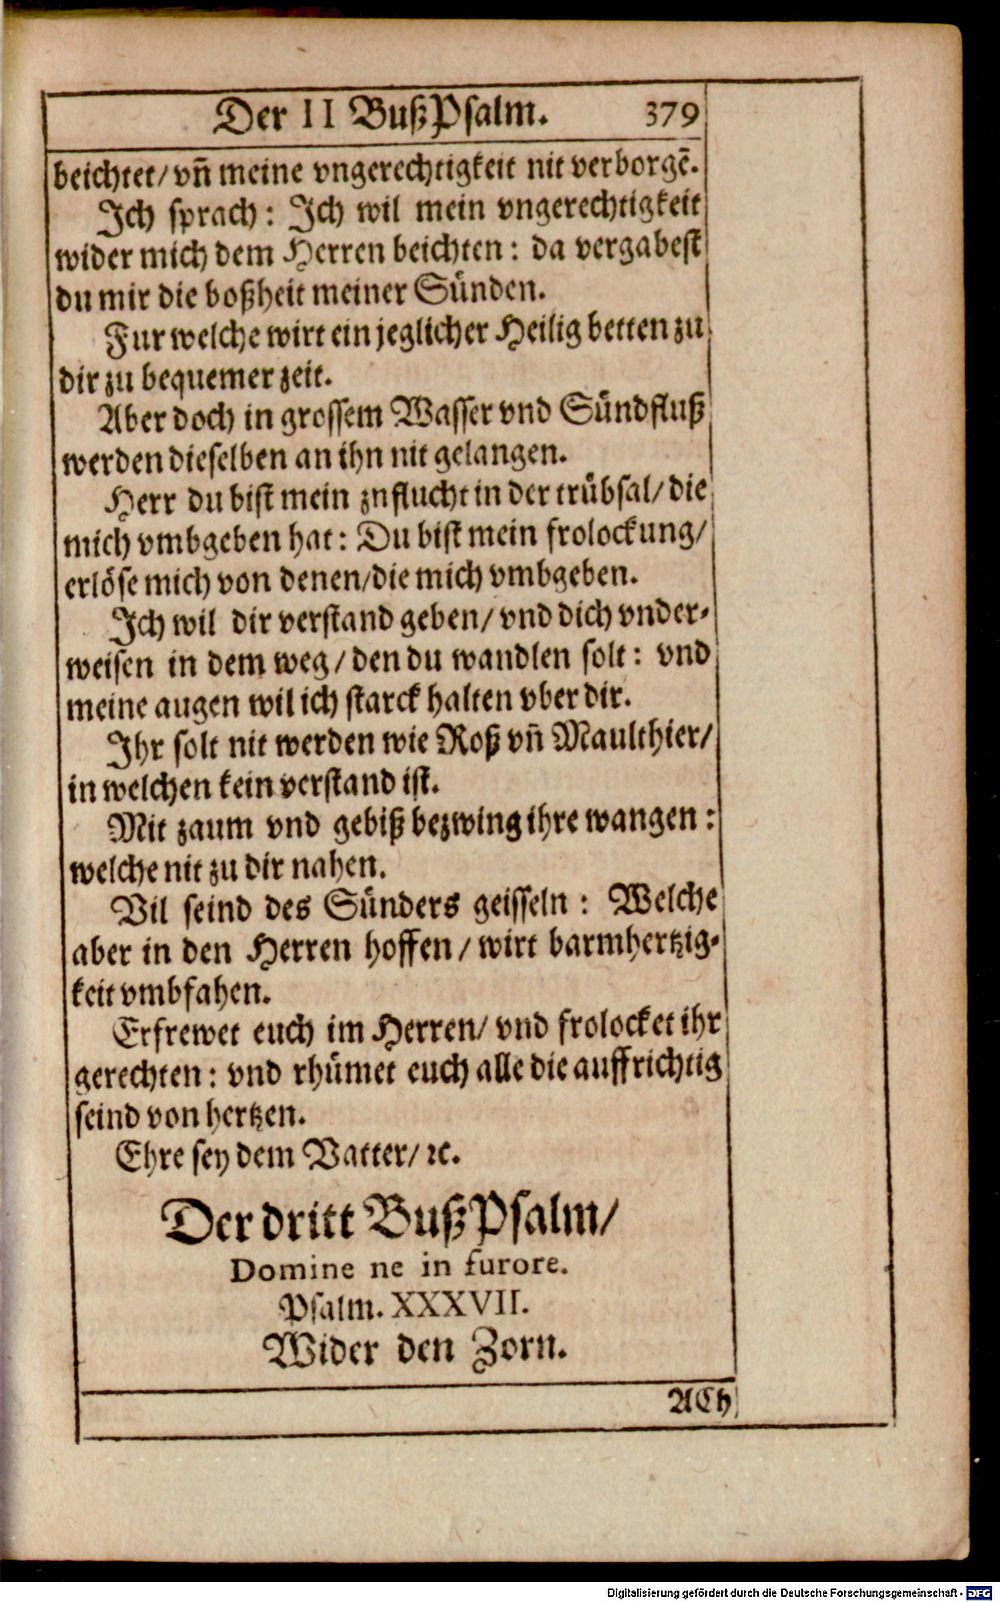 Der II BußPsalm. 379
beichtet/ vñ meine vngerechtigkeit nit verborgē.
Ich sprach: Ich wil mein vngerechtigkeit
wider mich dem Herren beichten: da vergabest
du mir die boßheit meiner Sünden.
Fur welche wirt ein jeglicher Heilig betten zu
dir zu bequemer zeit.
Aber doch in grossem Wasser vnd Sündfluß
werden dieselben an ihn nit gelangen.
Herr du bist mein znflucht in der trübsal/ die
mich vmbgeben hat: Du bist mein frolockung/
erlöse mich von denen/ die mich vmbgeben.
Ich wil dir verstand geben/ vnd dich vnder-
weisen in dem weg/ den du wandlen solt: vnd
meine augen wil ich starck halten vber dir.
Ihr solt nit werden wie Roß vñ Maulthier/
in welchen kein verstand ist.
Mit zaum vnd gebiß bezwing ihre wangen:
welche nit zu dir nahen.
Vil seind des Sünders geisseln: Welche
aber in den Herren hoffen/ wirt barmhertzig-
keit vmbfahen.
Erfrewet euch im Herren/ vnd frolocket ihr
gerechten: vnd rhümet euch alle die auffrichtig
seind von hertzen.
Ehre sey dem Vatter/ ꝛc.
Der dritt BußPsalm/
Domine ne in furore.
Psalm. XXXVII.
Wider den Zorn.
ACh
Digitalisierung gefördert durch die Deutsche Forschungsgemeinschaft - DFG